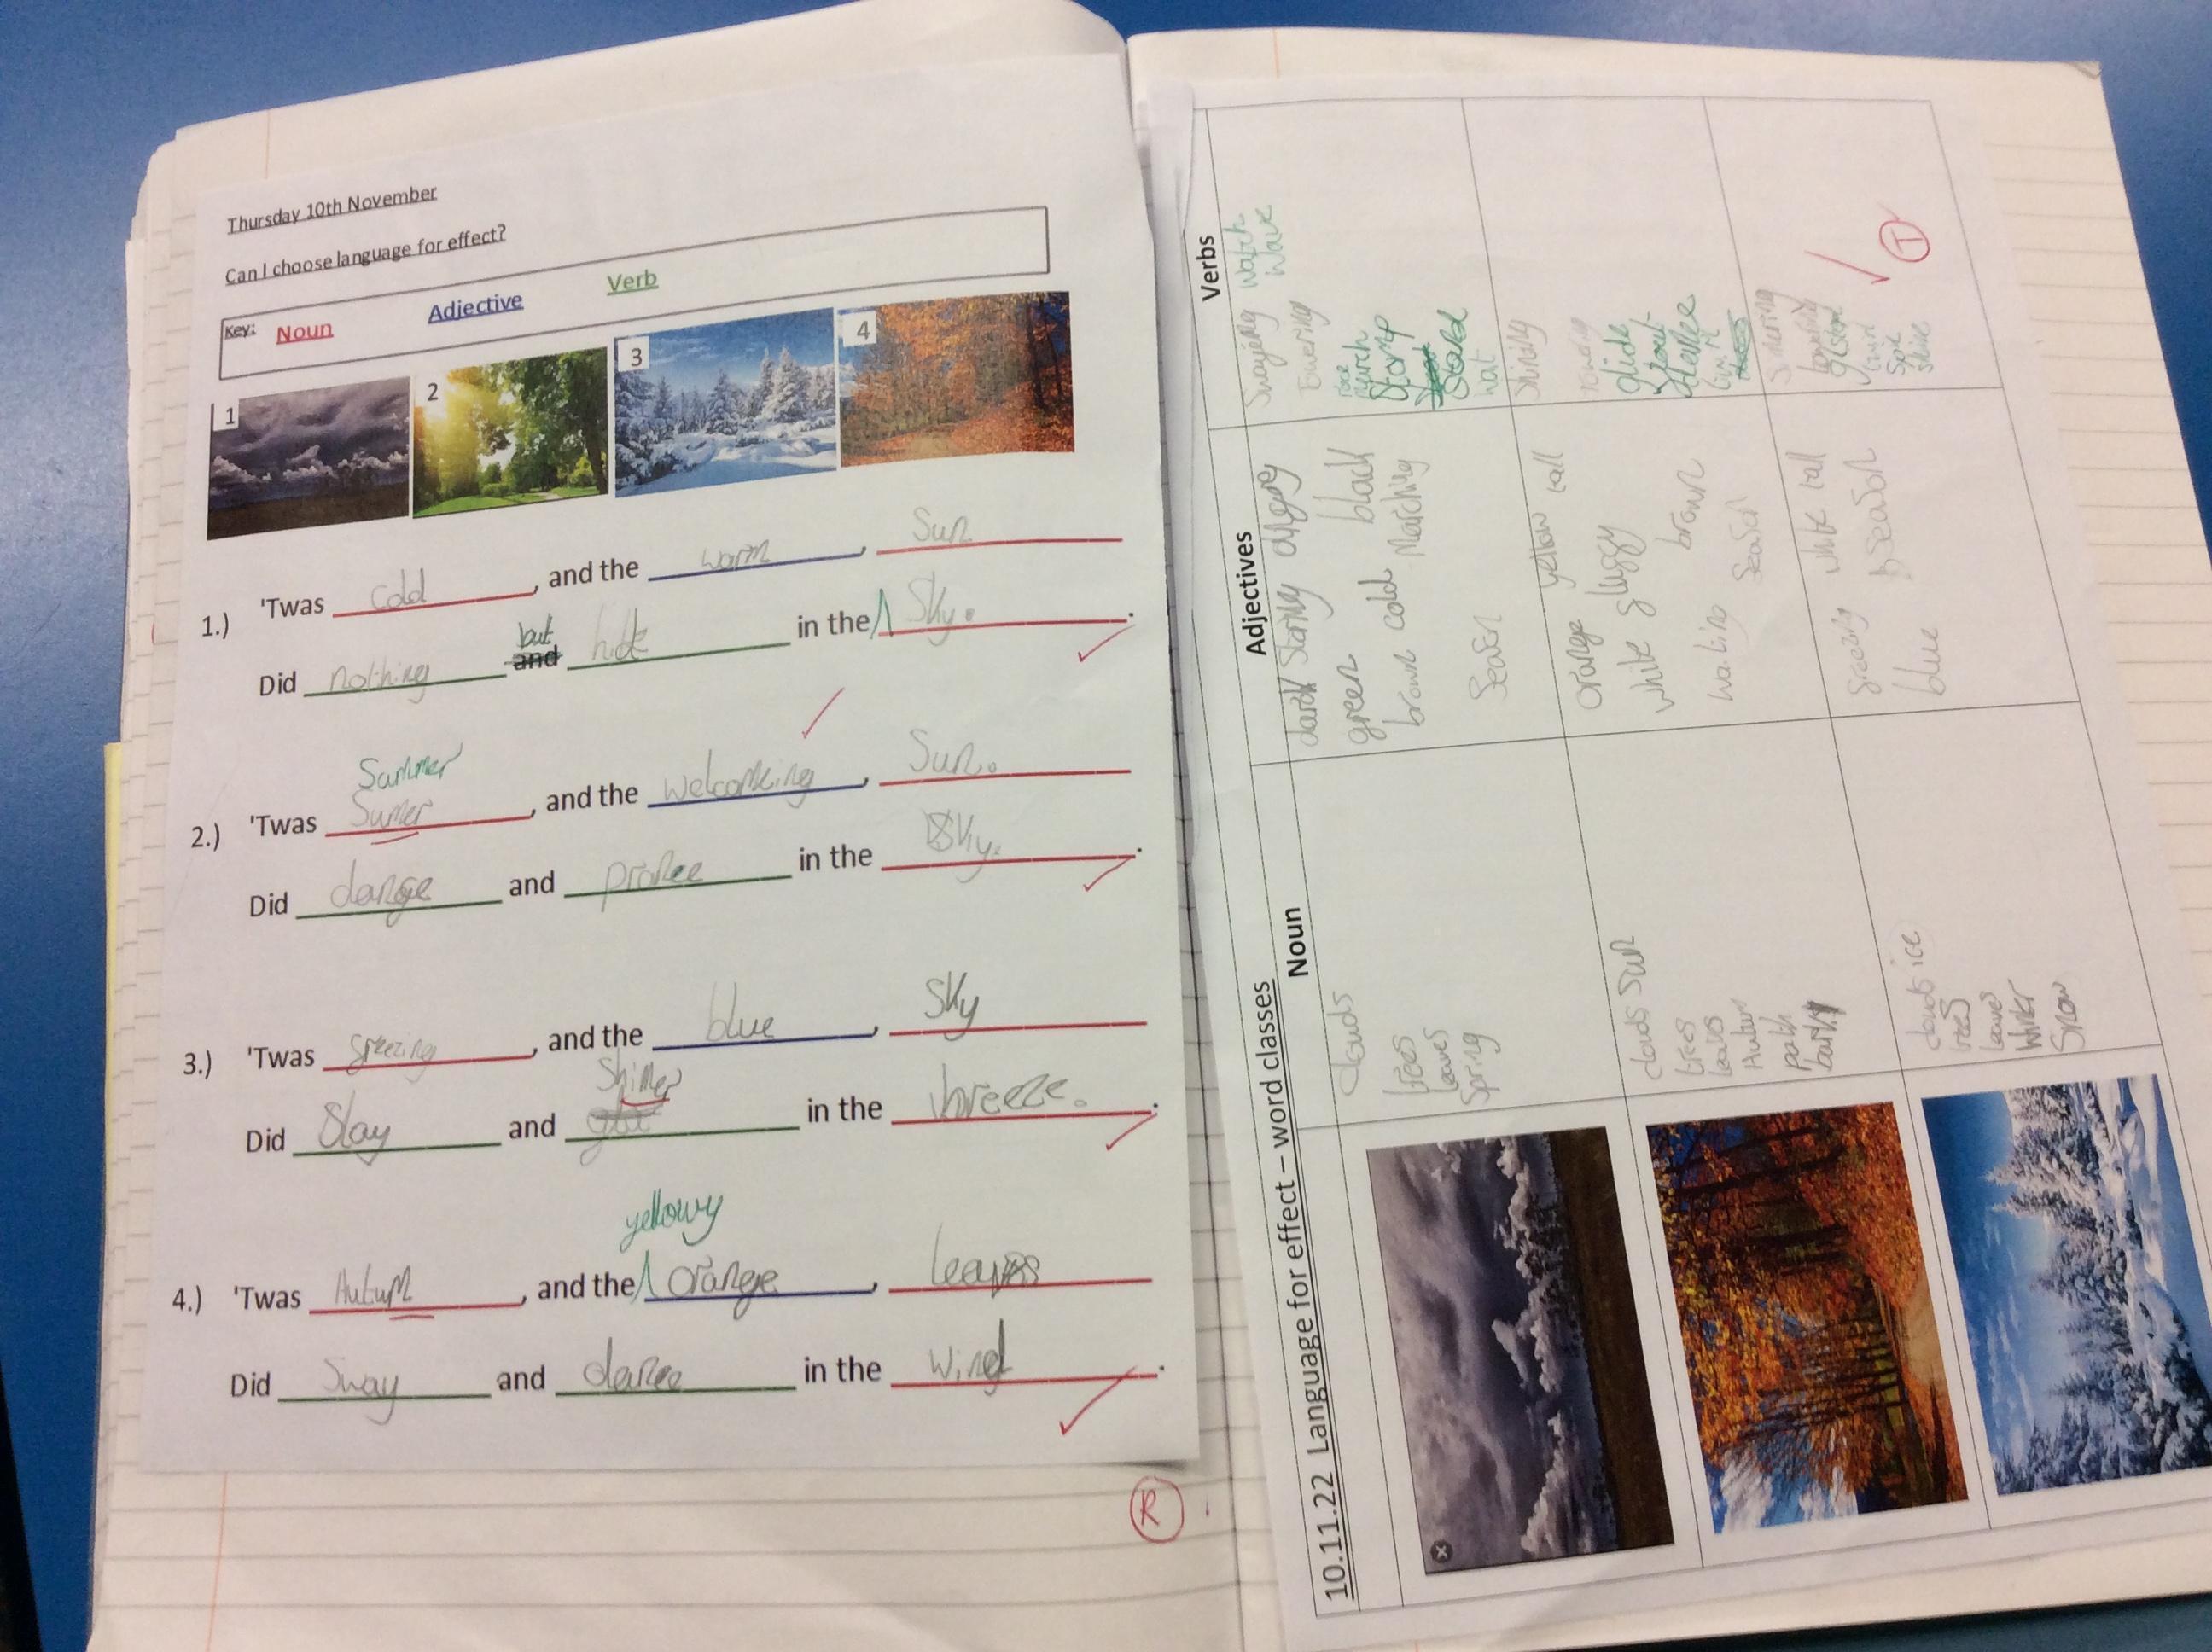 Thursday 10th November
Can I choose language for effect?
Key: Noun Adjective Verb
1 2 3 4
1.) 'Twas cold, and the warm, Sun
but
Did nothing and hide in the Sky..
Summer
2.) 'Twas Sumer, and the welcomking, Sun.
Did dange and prance in the Sky..
3.) 'Twas freezing, and the blue, Sky
Shimer
Did Slay and in the breeze..
yellowy
4.) 'Twas Autum, and the orange, leaves
Did Sway and dance in the wind.
R
10.11.22 Language for effect – word classes
Noun Adjectives Verbs
clouds
trees
leaves
Spring
dark Staring angry
green black
brown cold Marching
Season
Swaying watch
Towering wave
Stomp
wait
clouds Sun
trees
leaves
Autum
path
bark
orange yellow tall
white fluffy
waiting brown
Season
Shining
Towering
glide
clouds ice
trees
leaves
Winter
Snow
freezing white tall
blue Season
Towering
Shine
T